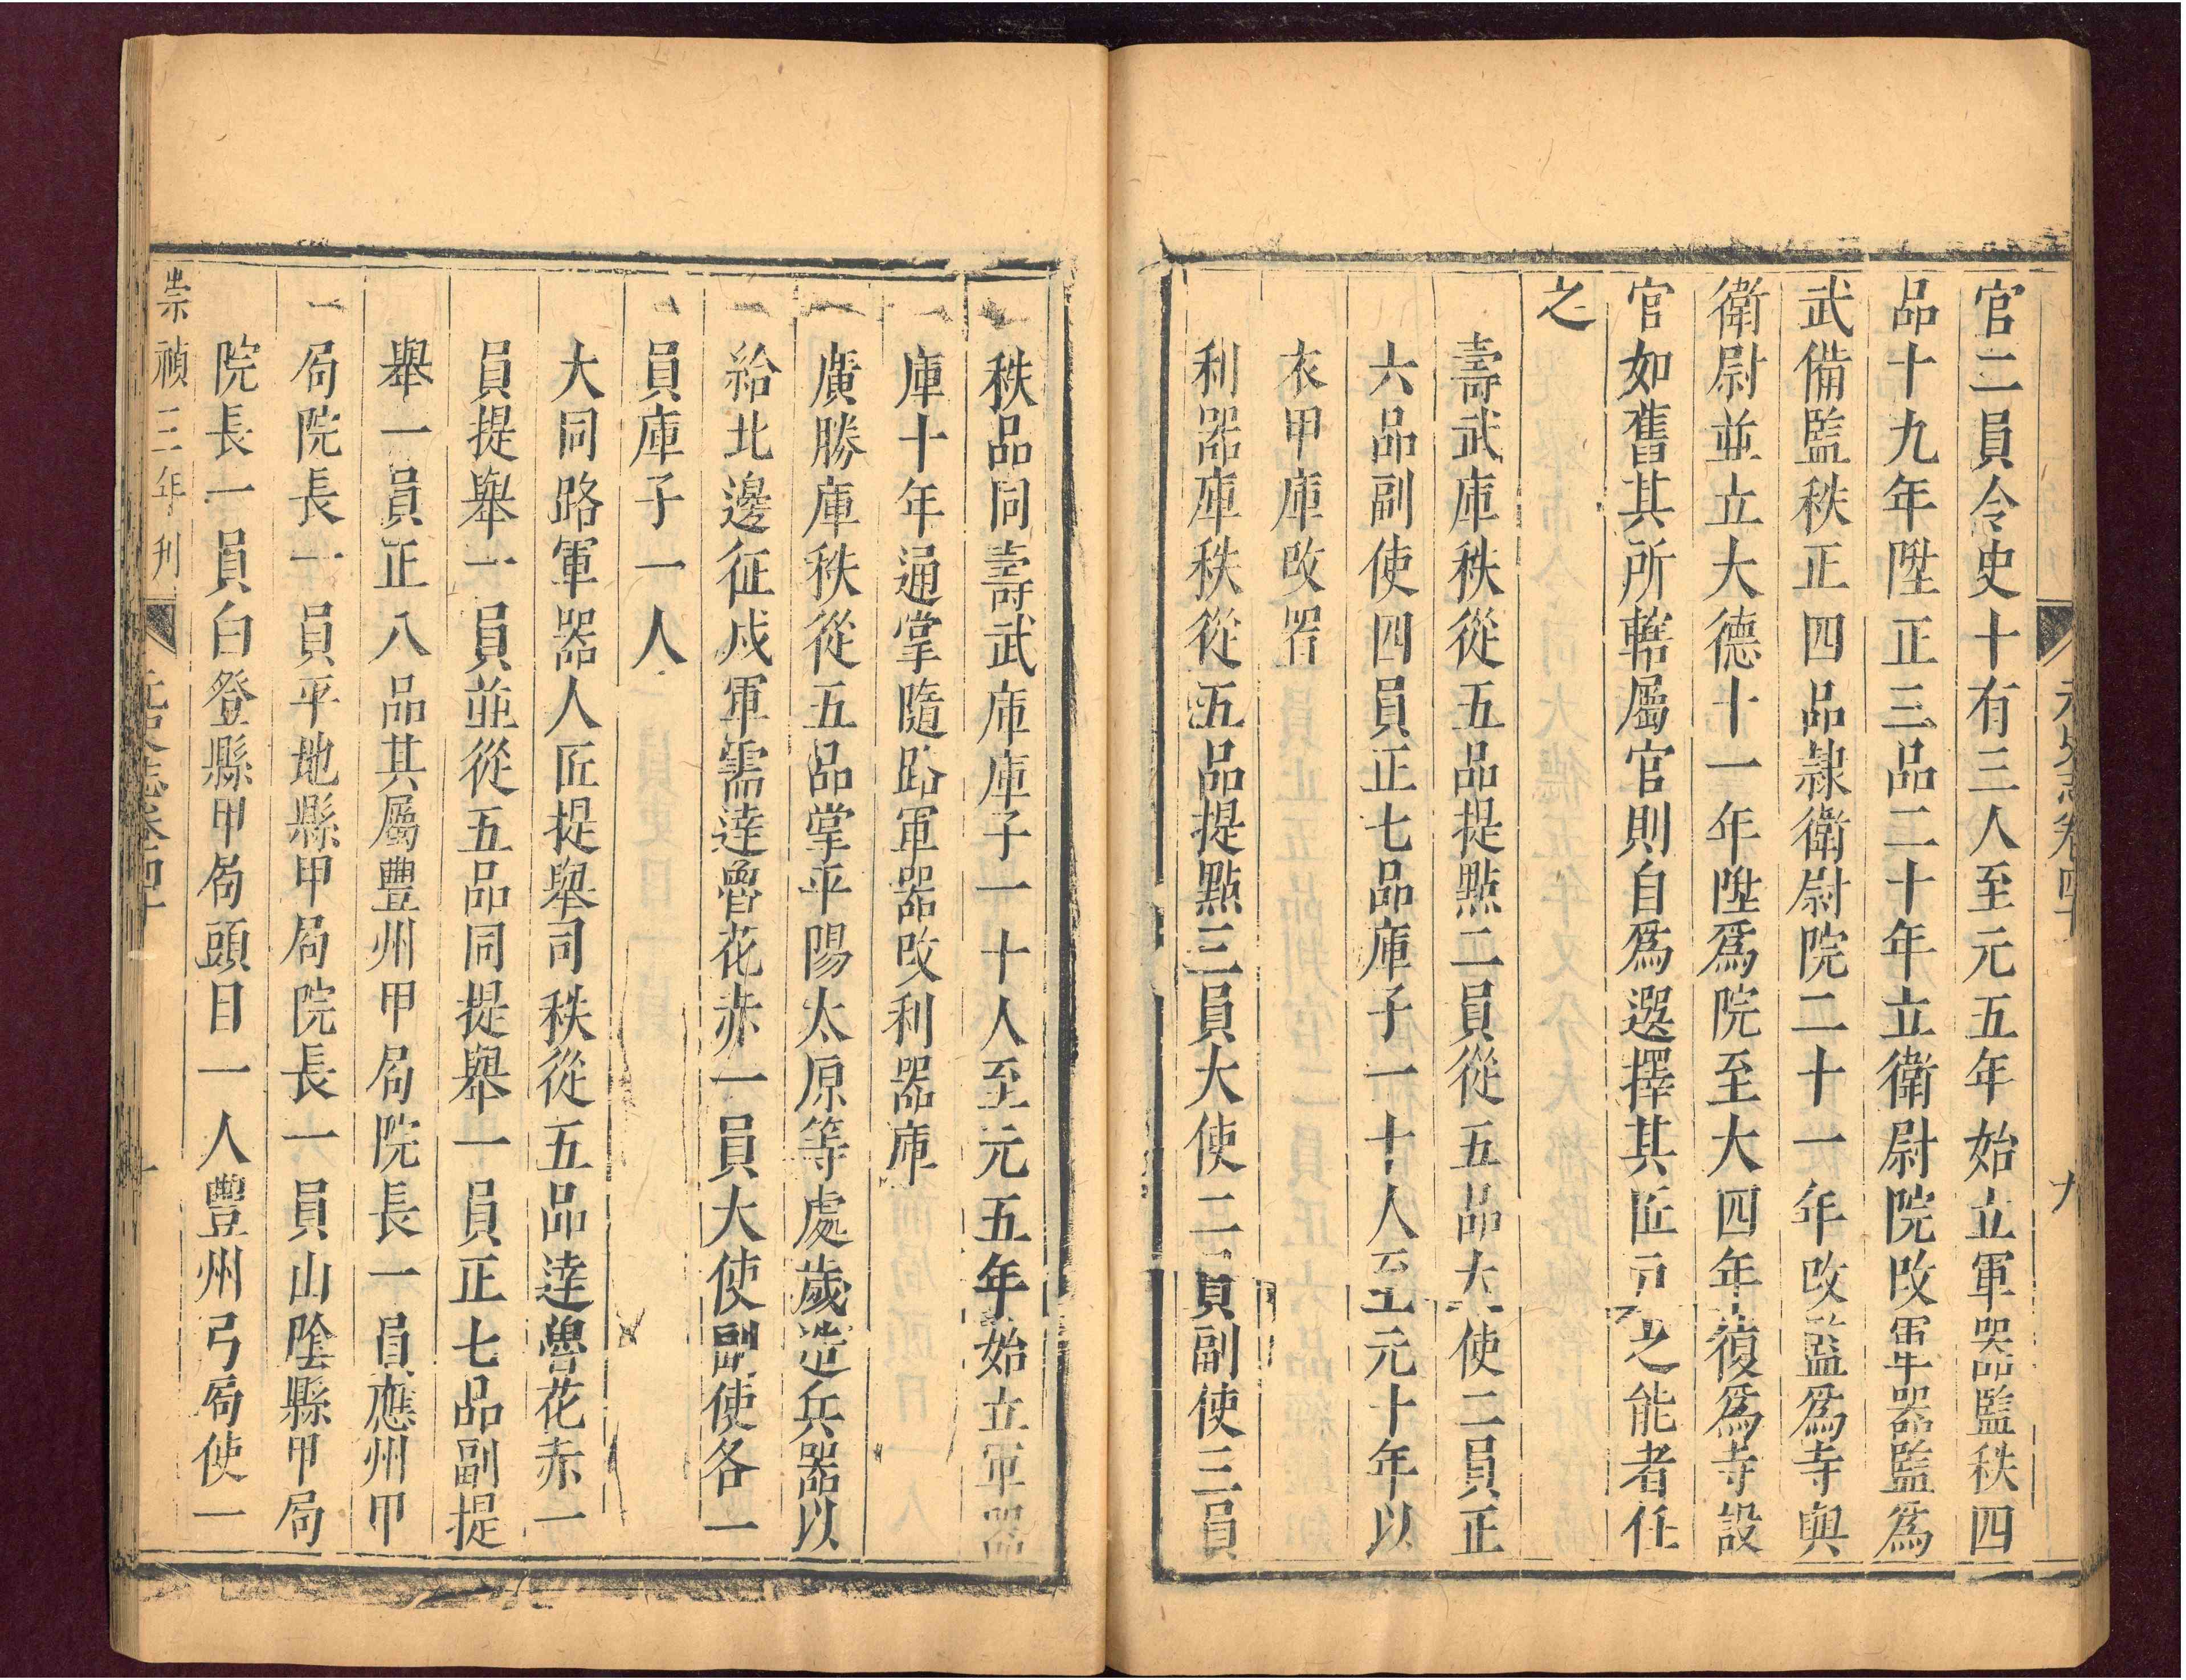 元史志卷四十
九
官二員令史十有三人至元五年始立軍器監秩四
品十九年陞正三品二十年立衛尉院改軍器監爲
武備監秩正四品隷衛尉院二十一年改監爲寺與
衛尉並立大德十一年陞爲院至大四年復爲寺設
官如舊其所轄屬官則自爲選擇其匠戸之能者任
之
壽武庫秩從五品提點二員從五品大使二員正
六品副使四員正七品庫子一十人至元十年以
衣甲庫改署
利器庫秩從五品提點三員大使二員副使三員
秩品同壽武庫庫子一十人至元五年始立軍器
庫十年通掌隨路軍器改利器庫
廣勝庫秩從五品掌平陽太原等處歲造兵器以
給北邊征戍軍需達魯花赤一員大使副使各一
員庫子一人
大同路軍器人匠提舉司秩從五品達魯花赤一
員提舉一員並從五品同提舉一員正七品副提
舉一員正八品其屬豐州甲局院長一員應州甲
局院長一員平地縣甲局院長一員山陰縣甲局
院長一員白登縣甲局頭目一人豐州弓局使一
崇禎三年刊
元史志卷四十